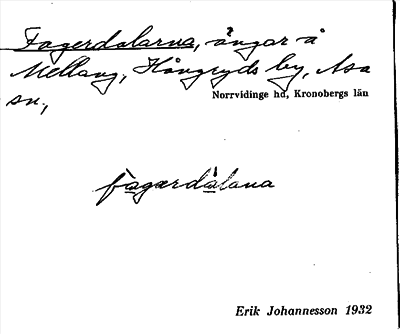 Fagerdalarna, ängar å
Mellang, Hångryds by, Asa
sn,
Norrvidinge hd, Kronobergs län
fàgærdàlana
Erik Johannesson 1932